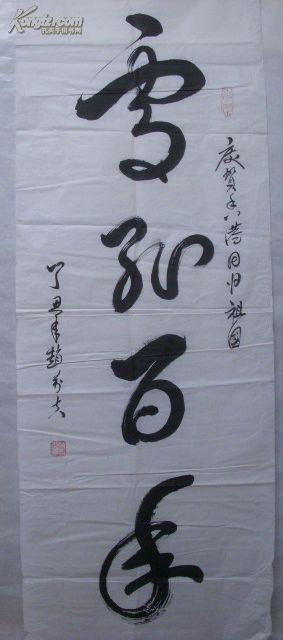 Kongfz.com
孔夫子旧书网
庆贺香港回归祖国
雪耻百年
丁丑年趙